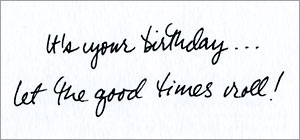 It's your birthday...
let the good times roll!